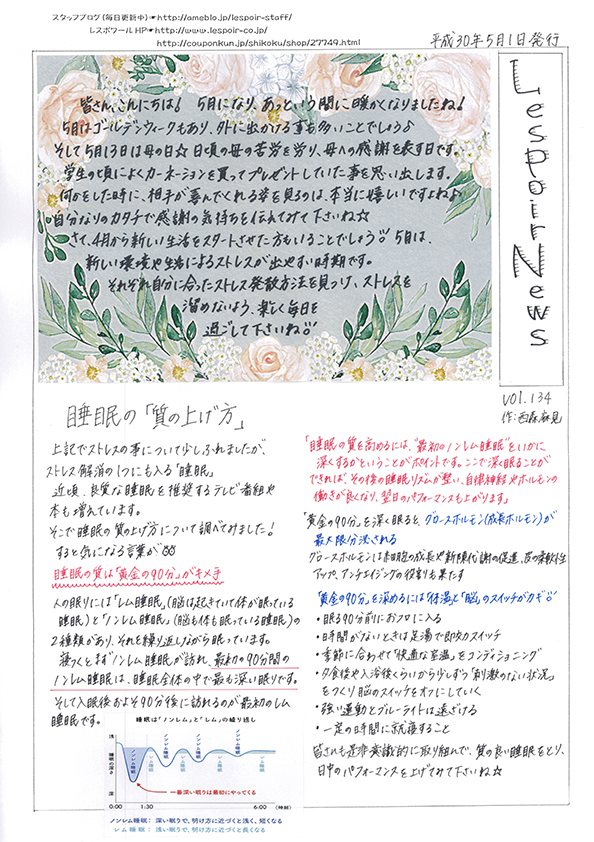 スタッフブログ(毎日更新中)☛http://ameblo.jp/lespoir-staff/
レスポワールHP☛http://www.lespoir-co.jp/
http://couponkun.jp/shikoku/shop/27749.html
平成30年5月1日発行
Lespoir News
皆さん、こんにちは! 5月になり、あっという間に暖かくなりましたね!
5月はゴールデンウィークもあり、外に出かける事も多いことでしょう♪
そして5月13日は母の日☆ 日頃の母の苦労を労り、母への感謝を表す日です。
学生の頃によくカーネーションを買ってプレゼントしていた事を思い出します。
何かをした時に、相手が喜んでくれる姿を見るのは、本当に嬉しいですよね♪
自分なりのカタチで感謝の気持ちを伝えてみて下さいね☆
さて、4月から新しい生活をスタートさせた方もいることでしょう!! 5月は、
新しい環境や生活によるストレスが出やすい時期です。
それぞれ自分に合ったストレス発散方法を見つけ、ストレスを
溜めないよう、楽しく毎日を
過ごして下さいね!!
vol.134
作:西森麻見
睡眠の「質の上げ方」
上記でストレスの事について少しふれましたが、
ストレス解消の1つにも入る「睡眠」
近頃、良質な睡眠を推奨するテレビ番組や
本も増えています。
そこで睡眠の質の上げ方について調べてみました!
すると気になる言葉が
睡眠の質は「黄金の90分」がキメ手
人の眠りには「レム睡眠」(脳は起きていて体が眠っている
睡眠)と「ノンレム睡眠」(脳も体も眠っている睡眠)の
2種類があり、それを繰り返しながら眠っています。
寝つくとまずノンレム睡眠が訪れ、最初の90分間の
ノンレム睡眠は、睡眠全体の中で最も深い眠りです。
そして入眠後およそ90分後に訪れるのが最初のレム
睡眠です。
睡眠は「ノンレム」と「レム」の繰り返し
浅
睡眠の深さ
深
ノンレム睡眠
レム睡眠
ノンレム睡眠
レム睡眠
ノンレム睡眠
レム睡眠
ノンレム睡眠
レム睡眠
一番深い眠りは最初にやってくる
0:00 1:30 6:00 (時間)
ノンレム睡眠: 深い眠りで、明け方に近づくと浅く、短くなる
レム睡眠: 浅い眠りで、明け方に近づくと長くなる
「睡眠の質を高めるには、"最初のノンレム睡眠"をいかに
深くするかということがポイントです。ここで深く眠ることが
できれば、その後の睡眠リズムが整い、自律神経やホルモンの
働きが良くなり、翌日のパフォーマンスも上がります」
「黄金の90分」を深く眠ると、グロースホルモン(成長ホルモン)が
最大限分泌される
グロースホルモンは細胞の成長や新陳代謝の促進、皮膚の柔軟性
アップ、アンチエイジングの役割も果たす
「黄金の90分」を深めるには「体温」と「脳」のスイッチがカギ!!
・眠る90分前におフロに入る
・時間がないときは足湯で即効スイッチ
・季節に合わせて「快適な室温」をコンディショニング
・夕食後や入浴後くらいから少しずつ「刺激のない状況」
をつくり脳のスイッチをオフにしていく
・強い運動とブルーライトは遠ざける
・一定の時間に就寝すること
皆さんも是非意識的に取り組んで、質の良い睡眠をとり、
日中のパフォーマンスを上げてみて下さいね☆